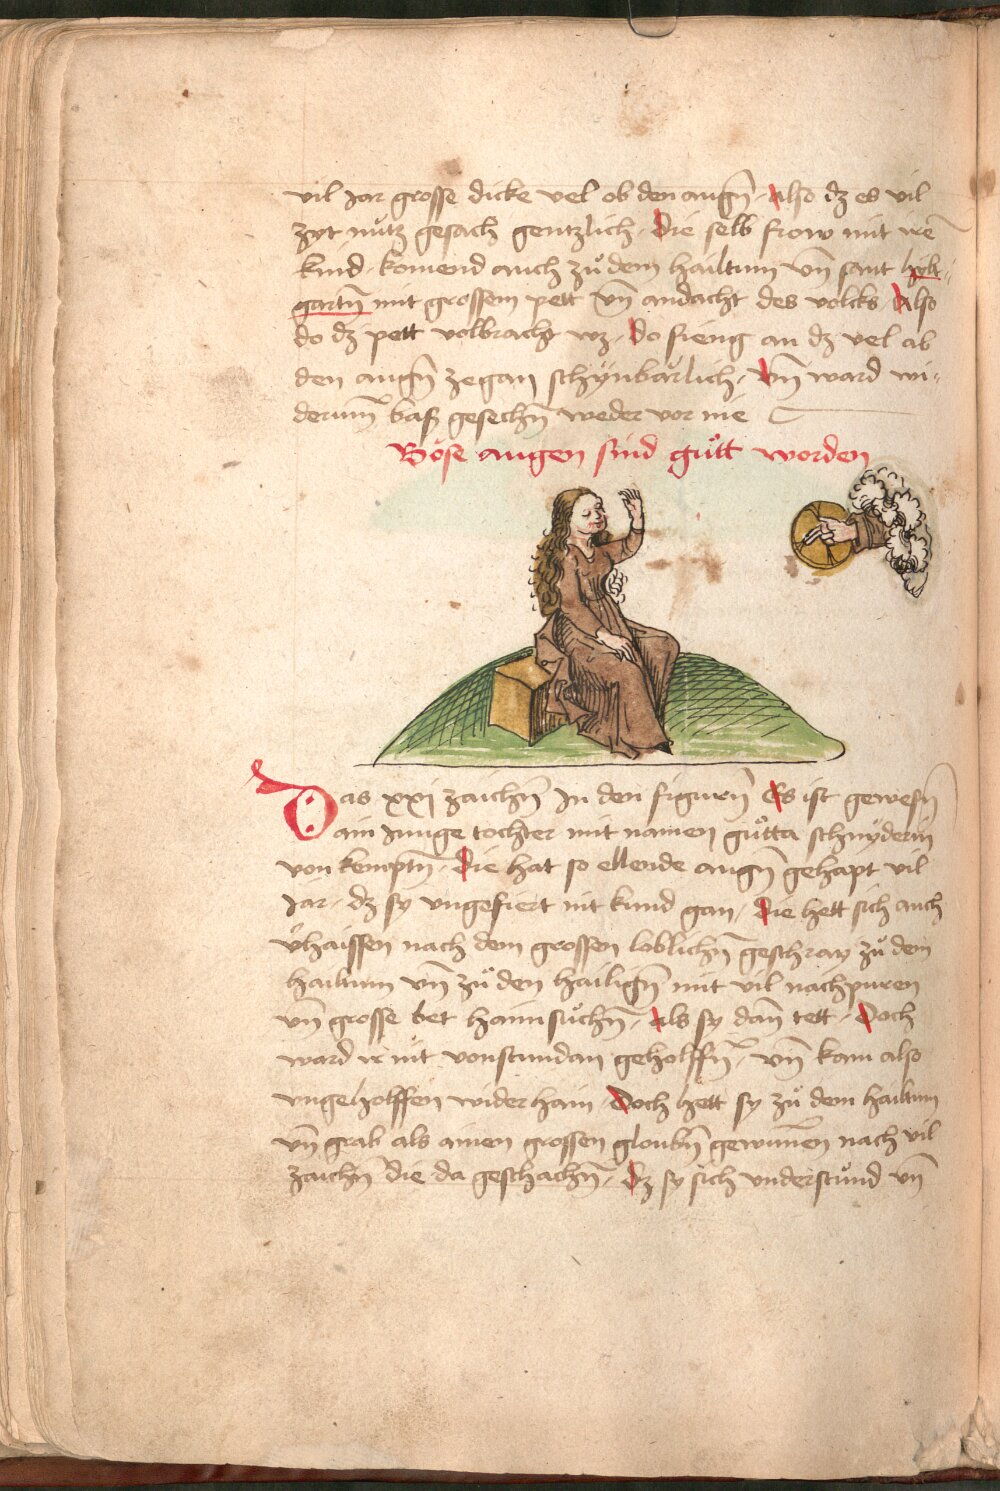 vil Jar grosse dicke vel ob den augn̄ · Also dz es vil
zyt nůtz gesach gentzlich · Die selb frow mit irē
kind · komend auch zů dem hailtum vn̄ sant hylt-
gartn̄ mit grossem pett vn̄ andacht des volcks · Also
do dz pett volbracht wz · Do fieng an dz vel ab
den augn̄ zegan schÿnbärlich · Vn̄ ward wi-
derum̄ bas gesechn̄ weder vor nie
Böse augen sind gůtt worden
Das xxj zaichn̄ Jn den figurn̄ Es ist gewesn̄
ain Junge tochter mit namen gůtta schnÿderin
von kemptn̄ · Die hat so ellende augn̄ gehapt vil
Jar · dz sy ungefiert nit kund gan · Die hett sich auch
v̾haissen nach dem grossen loblichn̄ geschray zů dem
hailtum vn̄ zů den hailign̄ mit vil nachpuren
vn̄ grosse bet haimsůchn̄ · Als sy dan̄ tett · Doch
ward ir nit vonstundan geholffn̄ · vn̄ kam also
ungeholffen wider haim · Doch hett sy zů dem hailtum
vn̄ grab als ainen grossen gloubn̄ gewun̄en nach vil
zaichn̄ die da geschachn̄ · Dz sy sich understůnd vn̄